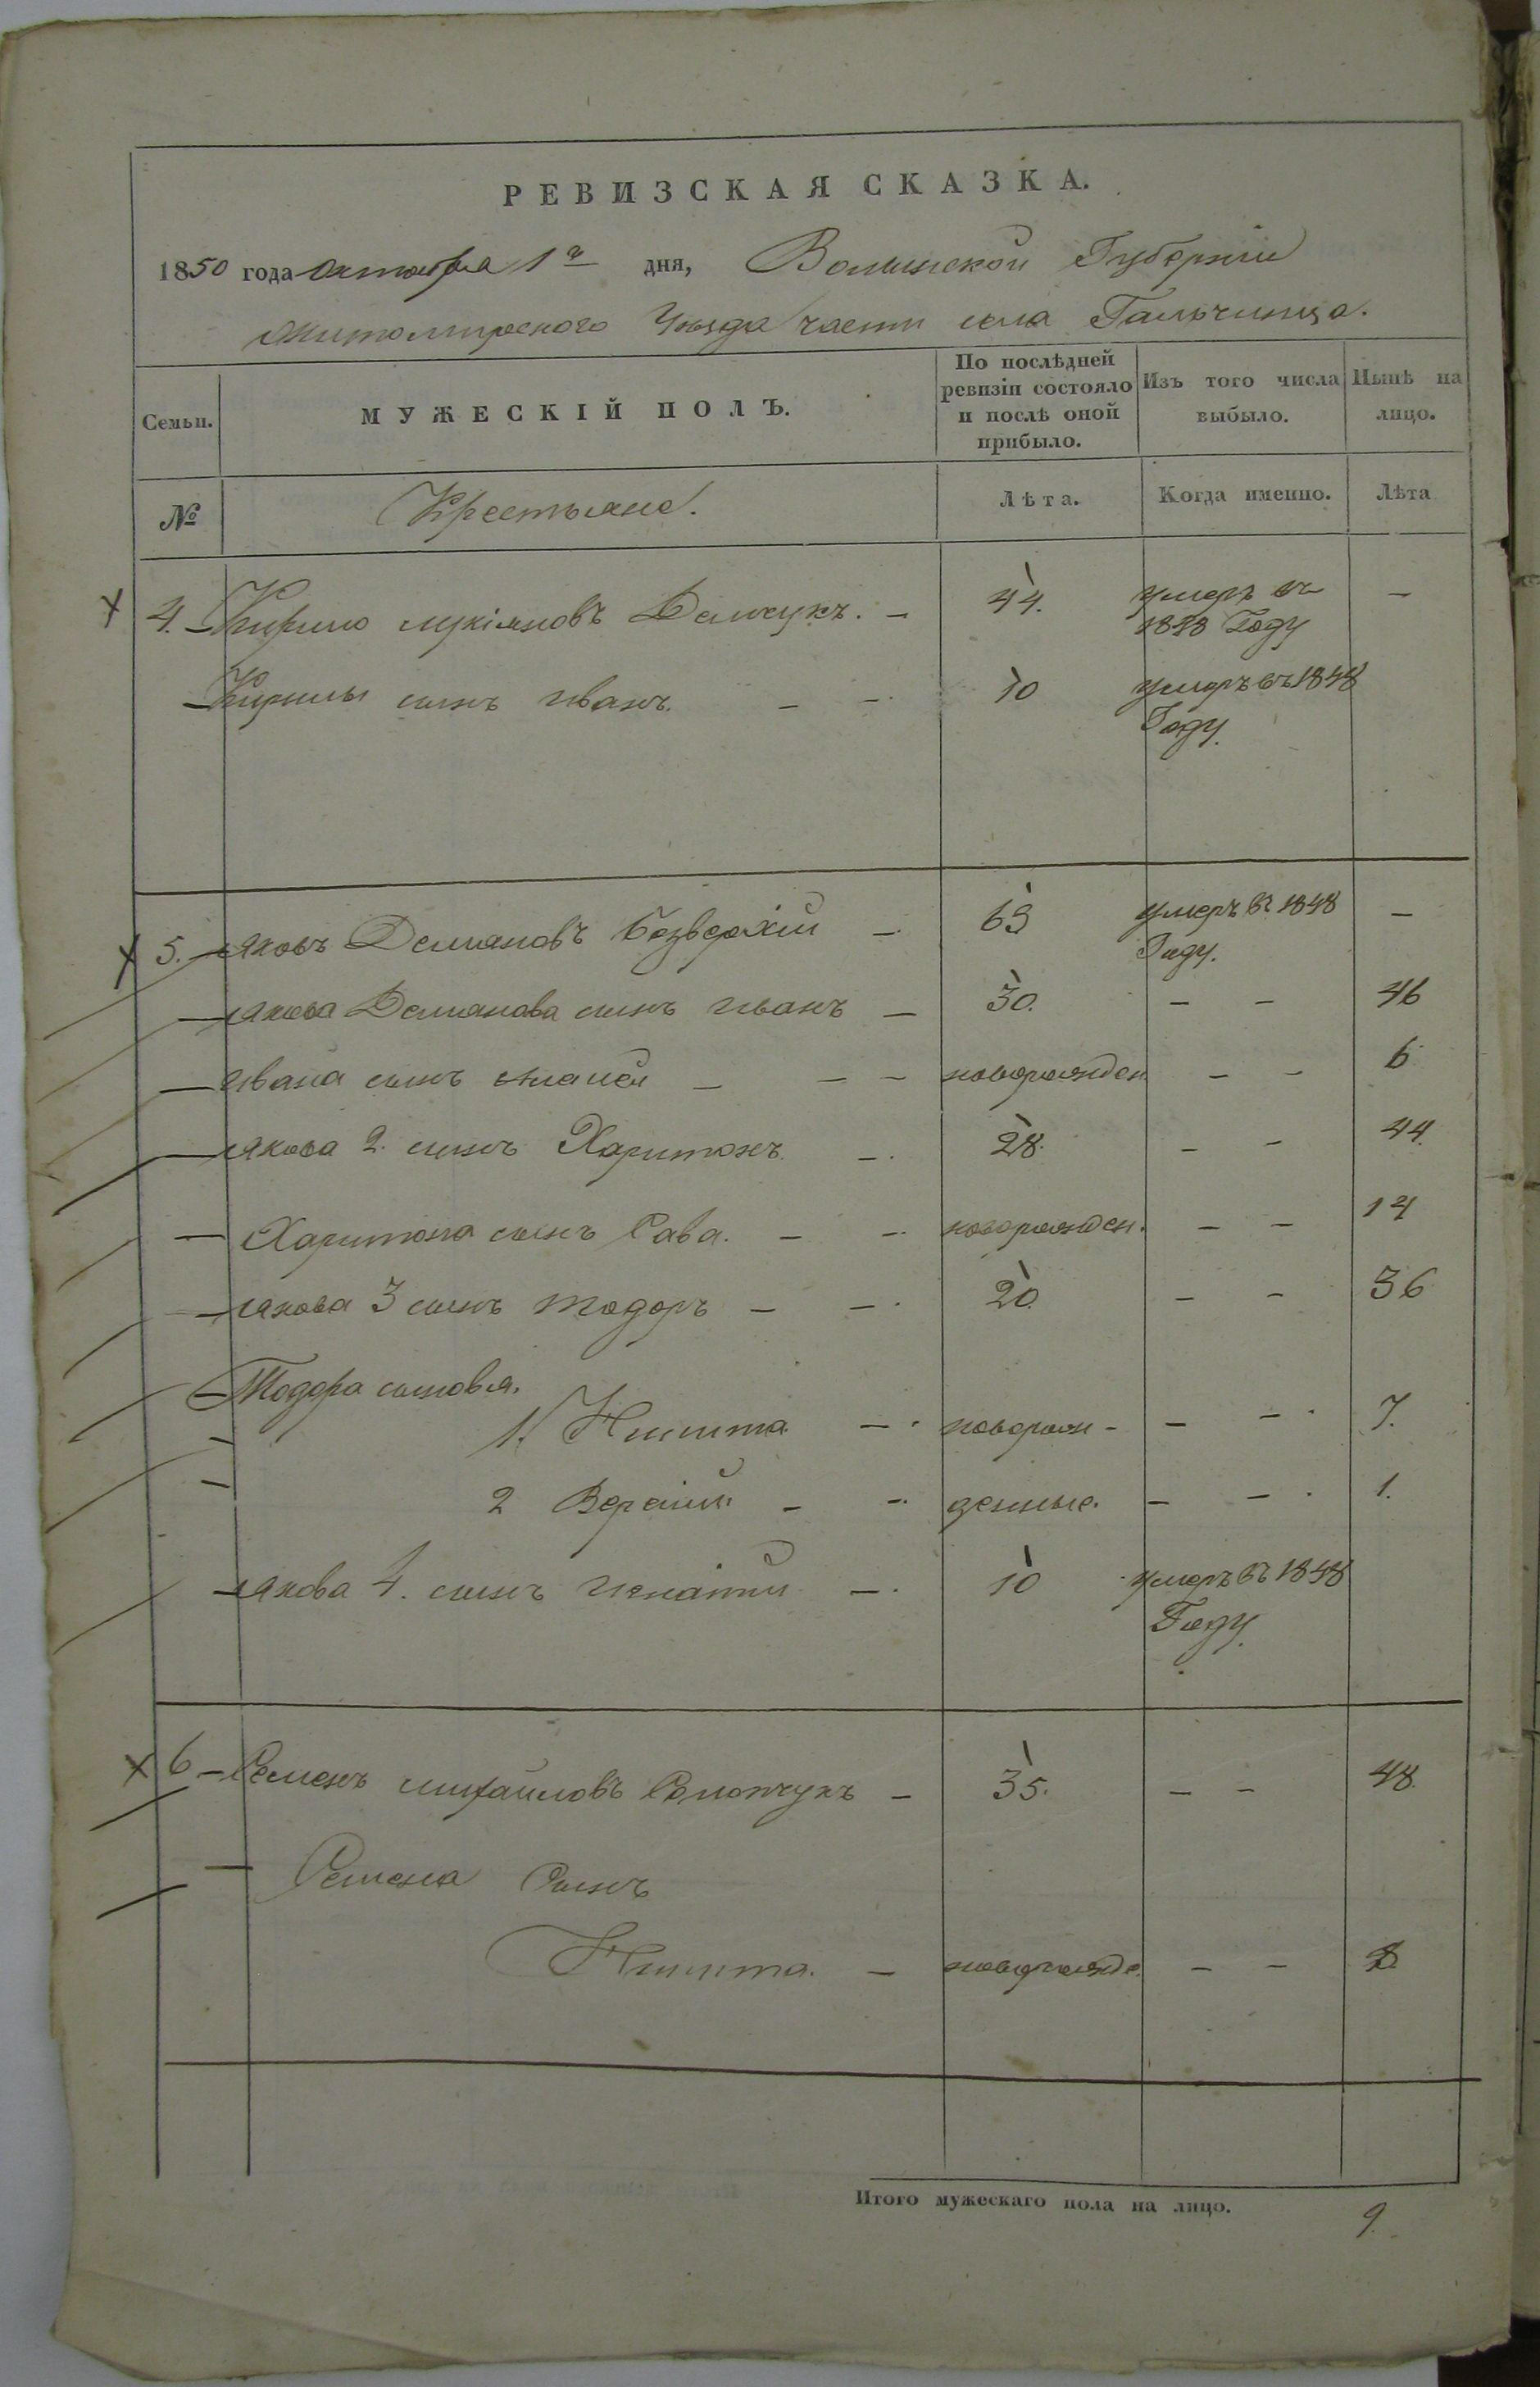 РЕВИЗСКАЯ СКАЗКА.
1850 года октября 1го дня, Волынской Губерніи
Житомирского Уѣзда части села Гальчинца.
Семьи. МУЖЕСКІЙ ПОЛЪ. По послѣдней ревизіи состояло и послѣ оной прибыло. Изъ того числа выбыло. Нынѣ на лицо.
№ Крестьяне. Лѣта. Когда именно. Лѣта
4. Кирило Лукіяновъ 44. умеръ въ 1848 Году —
Кирилы сынъ Иванъ. — — 10 умеръ въ 1848 Году.
5. Яковъ Демяновъ Безверхій — 69 умеръ въ 1848 Году. —
Якова Демянова сынъ Иванъ — 30. — — 46
Ивана сынъ — — — новорожден — — 6
Якова 2. сынъ Харитонъ — 28. — — 44.
Харитона сынъ Сава. — — новорожден. — — 14
Якова 3 сынъ Тодоръ — — 20. — — 36
Тодора сыновья.
1. Никита — новорож- — — 7.
2 — — денные. — — 1.
Якова 4. сынъ Игнатій — 10 умеръ въ 1848 Году.
6 Семенъ Михайловъ — 35. — — 48.
Семена Сынъ
Никита. — новорожде. — — 8
Итого мужескаго пола на лицо. 9.